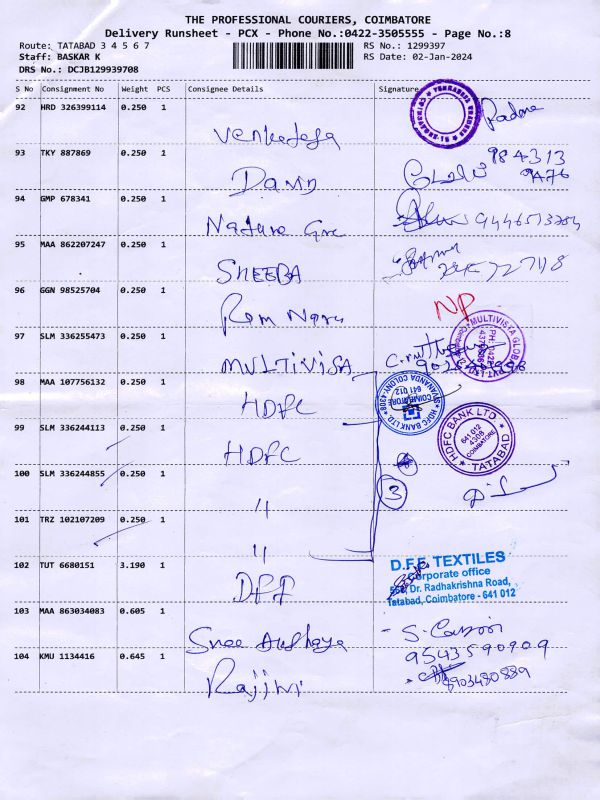 THE PROFESSIONAL COURIERS, COIMBATORE
Delivery Runsheet - PCX - Phone No.:0422-3505555 - Page No.:8
Route: TATABAD 3 4 5 6 7 RS No.: 1299397
Staff: BASKAR K RS Date: 02-Jan-2024
DRS No.: DCJB129939708
S No Consignment No Weight PCS Consignee Details Signature
92 HRD 326399114 0.250 1
Padma
93 TKY 887869 0.250 1
David
94 GMP 678341 0.250 1
Nature
95 MAA 862207247 0.250 1
SHEEBA
96 GGN 98525704 0.250 1
Ram NP
97 SLM 336255473 0.250 1
MULTIVISA
MULTIVISTA GLOBAL
98 MAA 107756132 0.250 1
HDFC
HDFC BANK LTD
COIMBATORE
641 012
99 SLM 336244113 0.250 1
HDFC
HDFC BANK LTD
641 012
4308
COIMBATORE
TATABAD
100 SLM 336244855 0.250 1
〃 3
101 TRZ 102107209 0.250 1
〃
102 TUT 6680151 3.190 1
DFF
D.F.F. TEXTILES
Corporate office
Dr. Radhakrishna Road,
Tatabad, Coimbatore - 641 012
103 MAA 863034083 0.605 1
Sree
9543590909
104 KMU 1134416 0.645 1
Rajini 8903480889